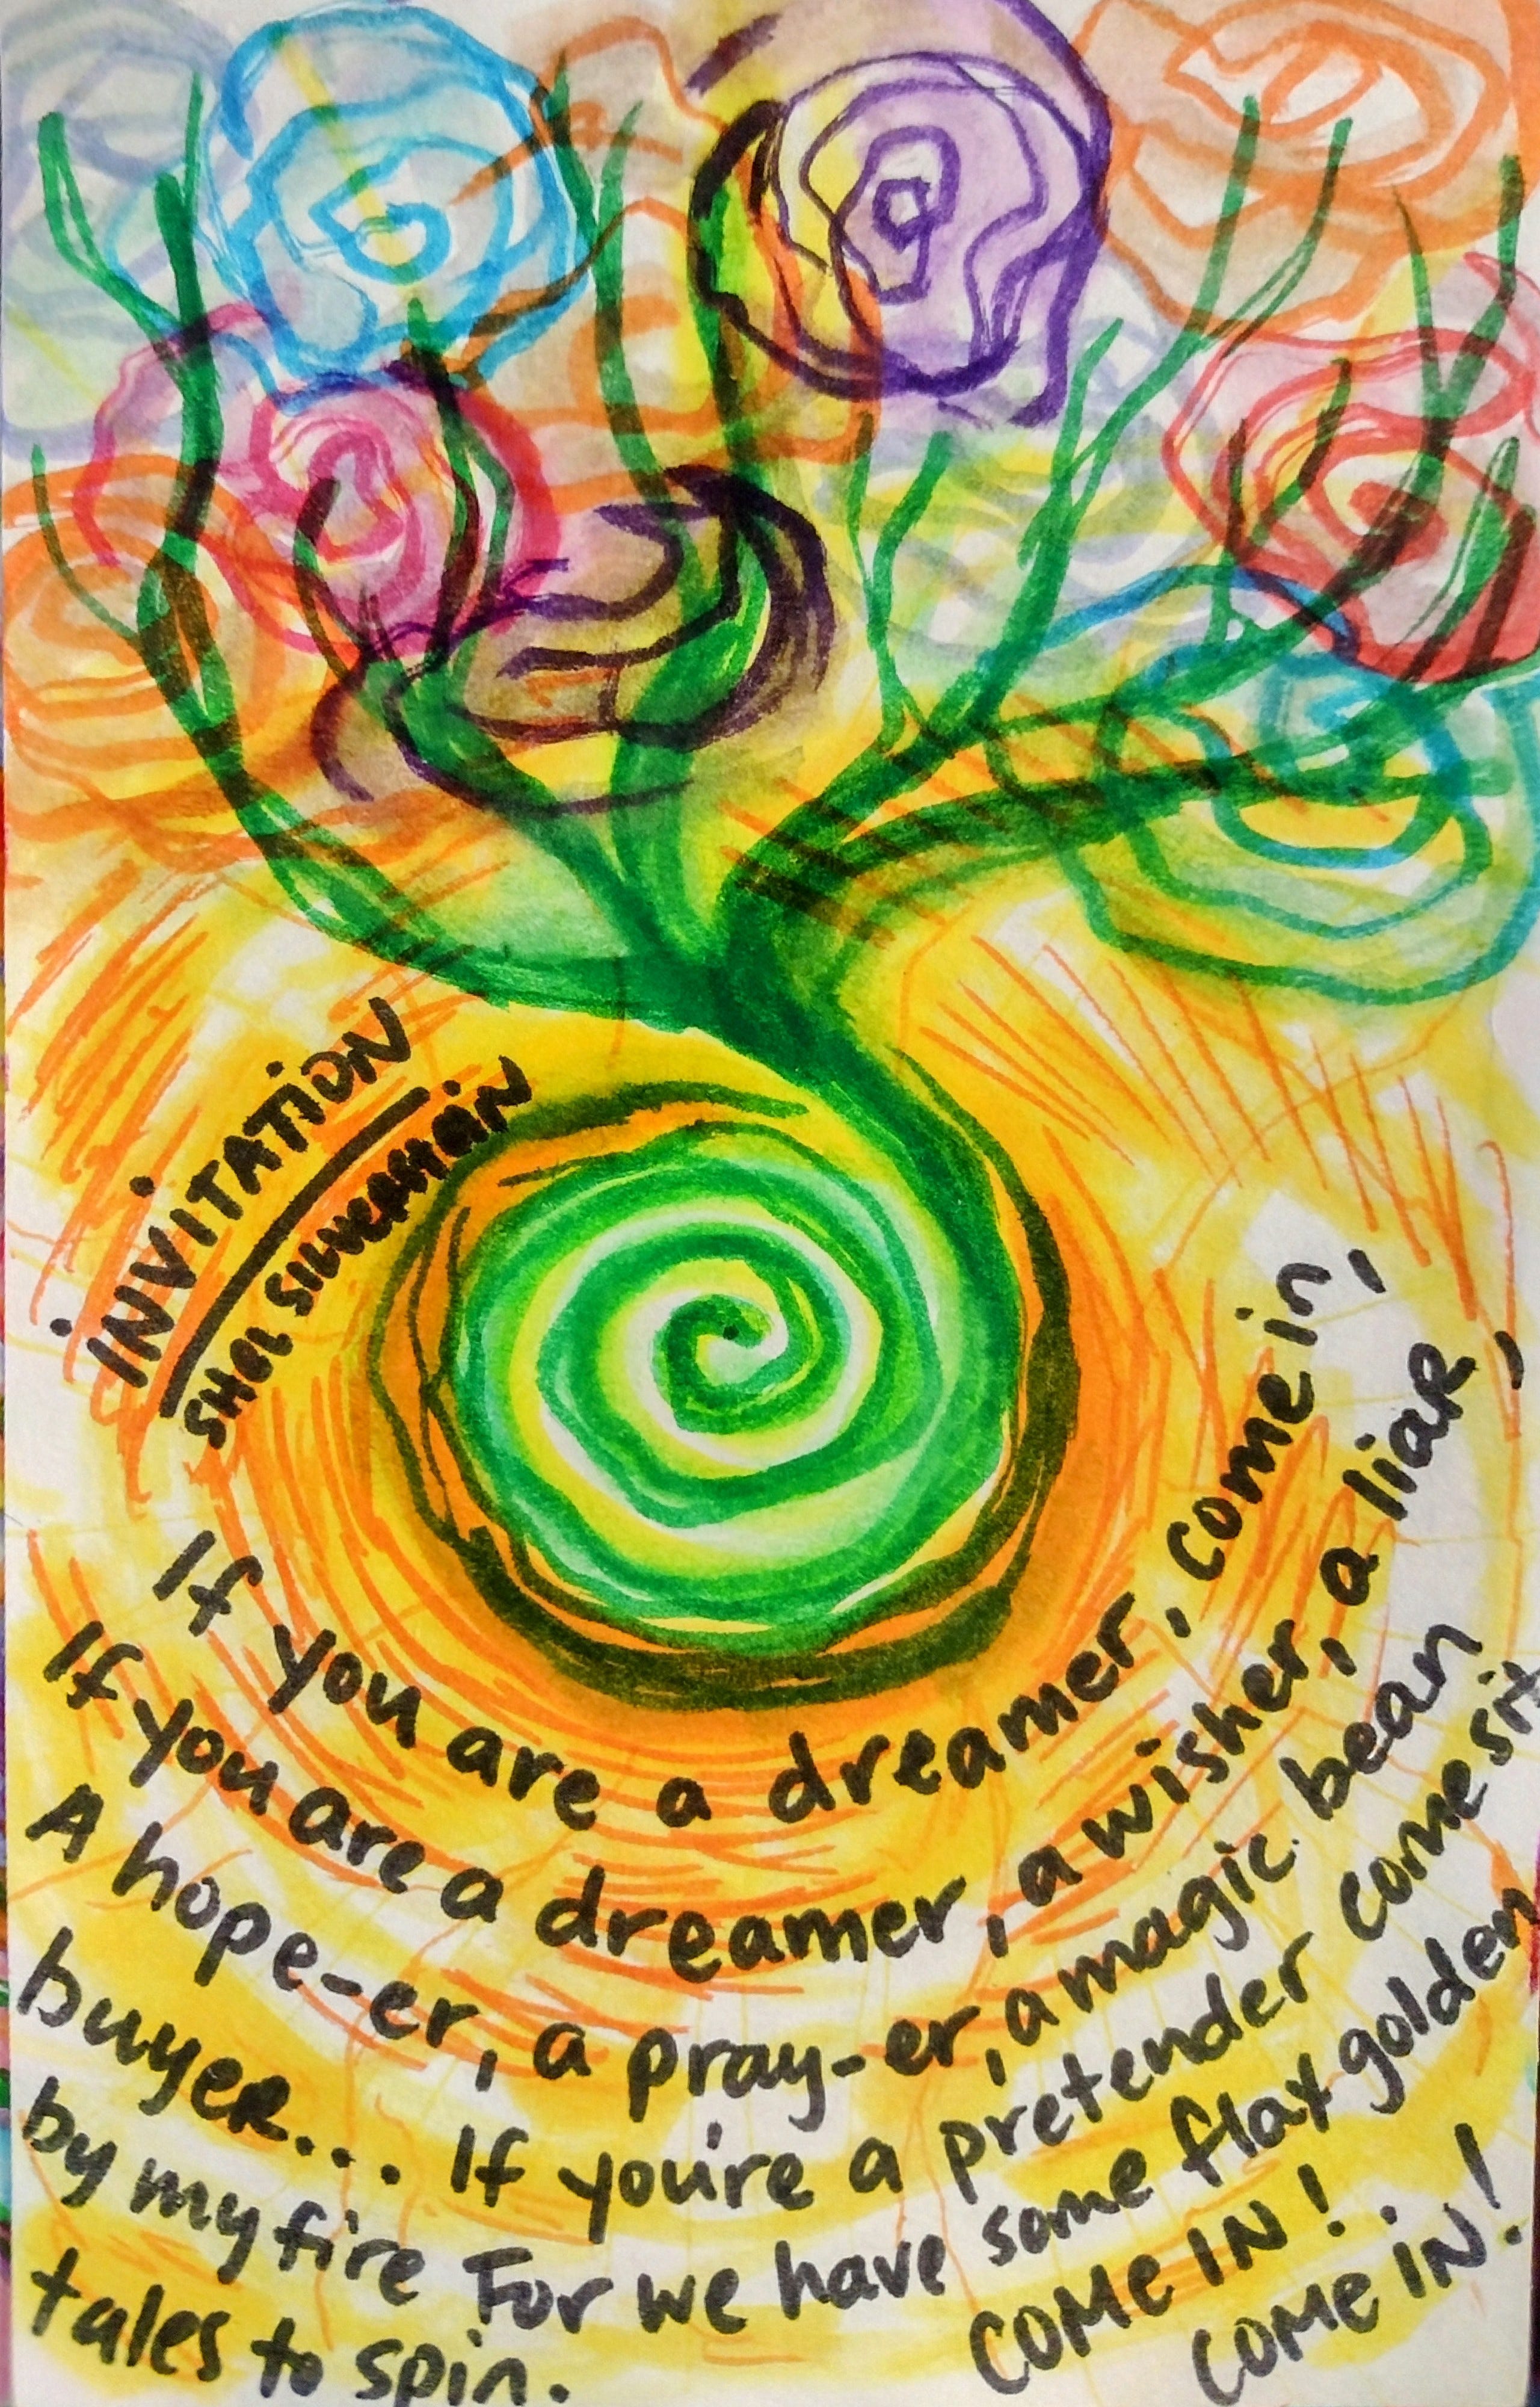 INVITATION
SHEL SILVERSTEIN
If you are a dreamer, come in,
If you are a dreamer, a wisher, a liar,
A hope-er, a pray-er, a magic bean
buyer... If you're a pretender come sit
by my fire For we have some flax golden
tales to spin.
COME IN!
COME IN!